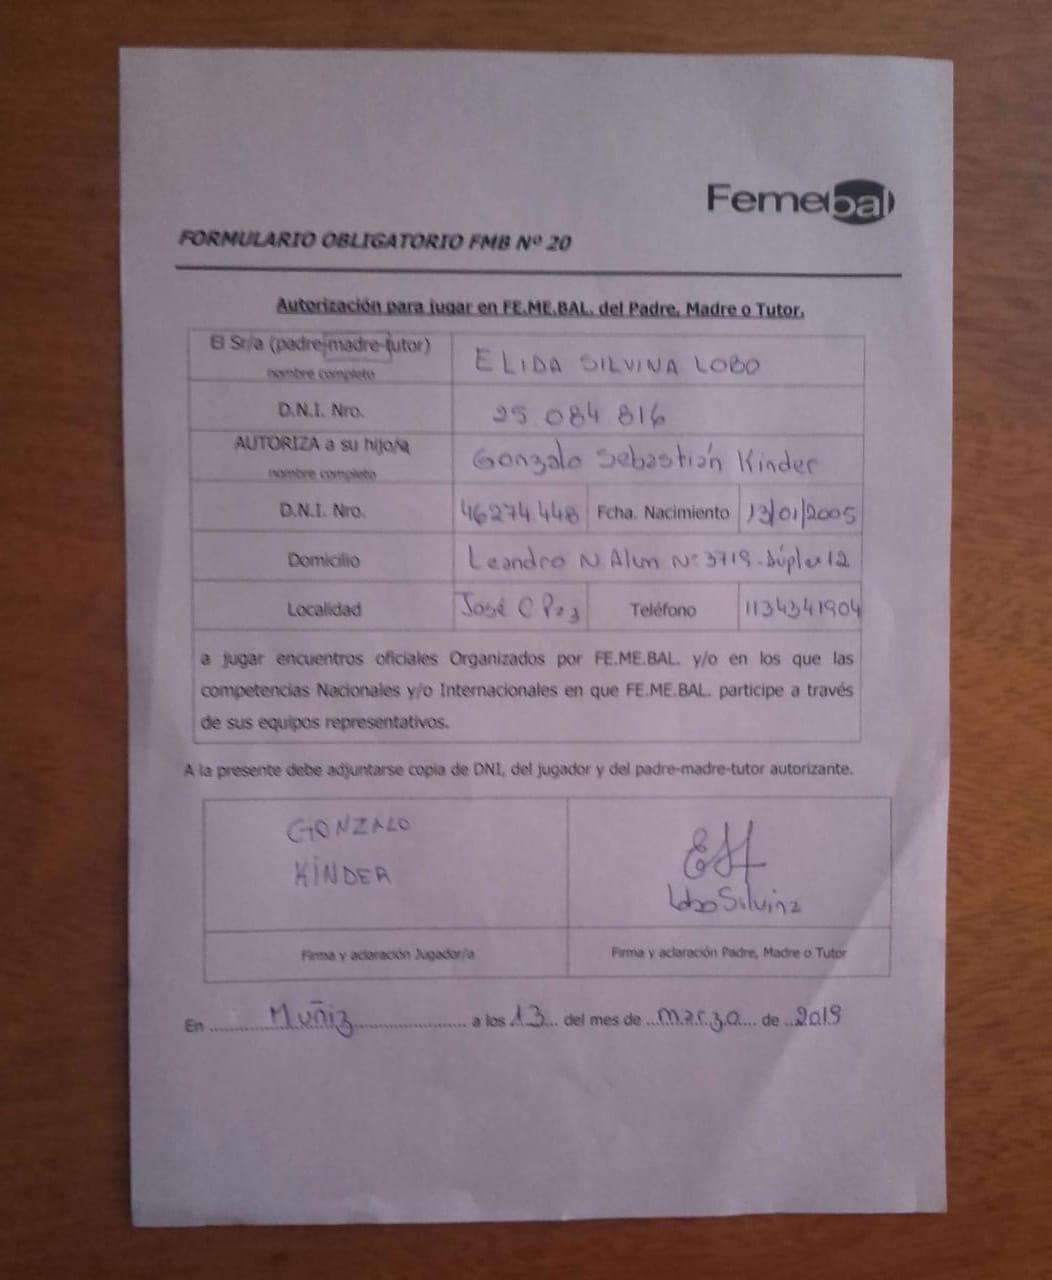 Femebal
FORMULARIO OBLIGATORIO FMB Nº 20
Autorización para jugar en FE.ME.BAL. del Padre, Madre o Tutor.
El Sr/a (padre-madre-tutor)
nombre completo
ELIDA SILVINA LOBO
D.N.I. Nro.
25 084 816
AUTORIZA a su hijo/a
nombre completo
Gonzalo Sebastián Kinder
D.N.I. Nro.
46274.448
Fcha. Nacimiento
13/01/2005
Domicilio
Leandro N. Alem Nº 3719 - Dúplex 12
Localidad
José C Paz
Teléfono
1134341904
a jugar encuentros oficiales Organizados por FE.ME.BAL. y/o en los que las
competencias Nacionales y/o Internacionales en que FE.ME.BAL. participe a través
de sus equipos representativos.
A la presente debe adjuntarse copia de DNI, del jugador y del padre-madre-tutor autorizante.
GONZALO
KINDER
Lobo Silvina
Firma y aclaración Jugador/a
Firma y aclaración Padre, Madre o Tutor
En Muñiz a los 13 del mes de marzo de 2019